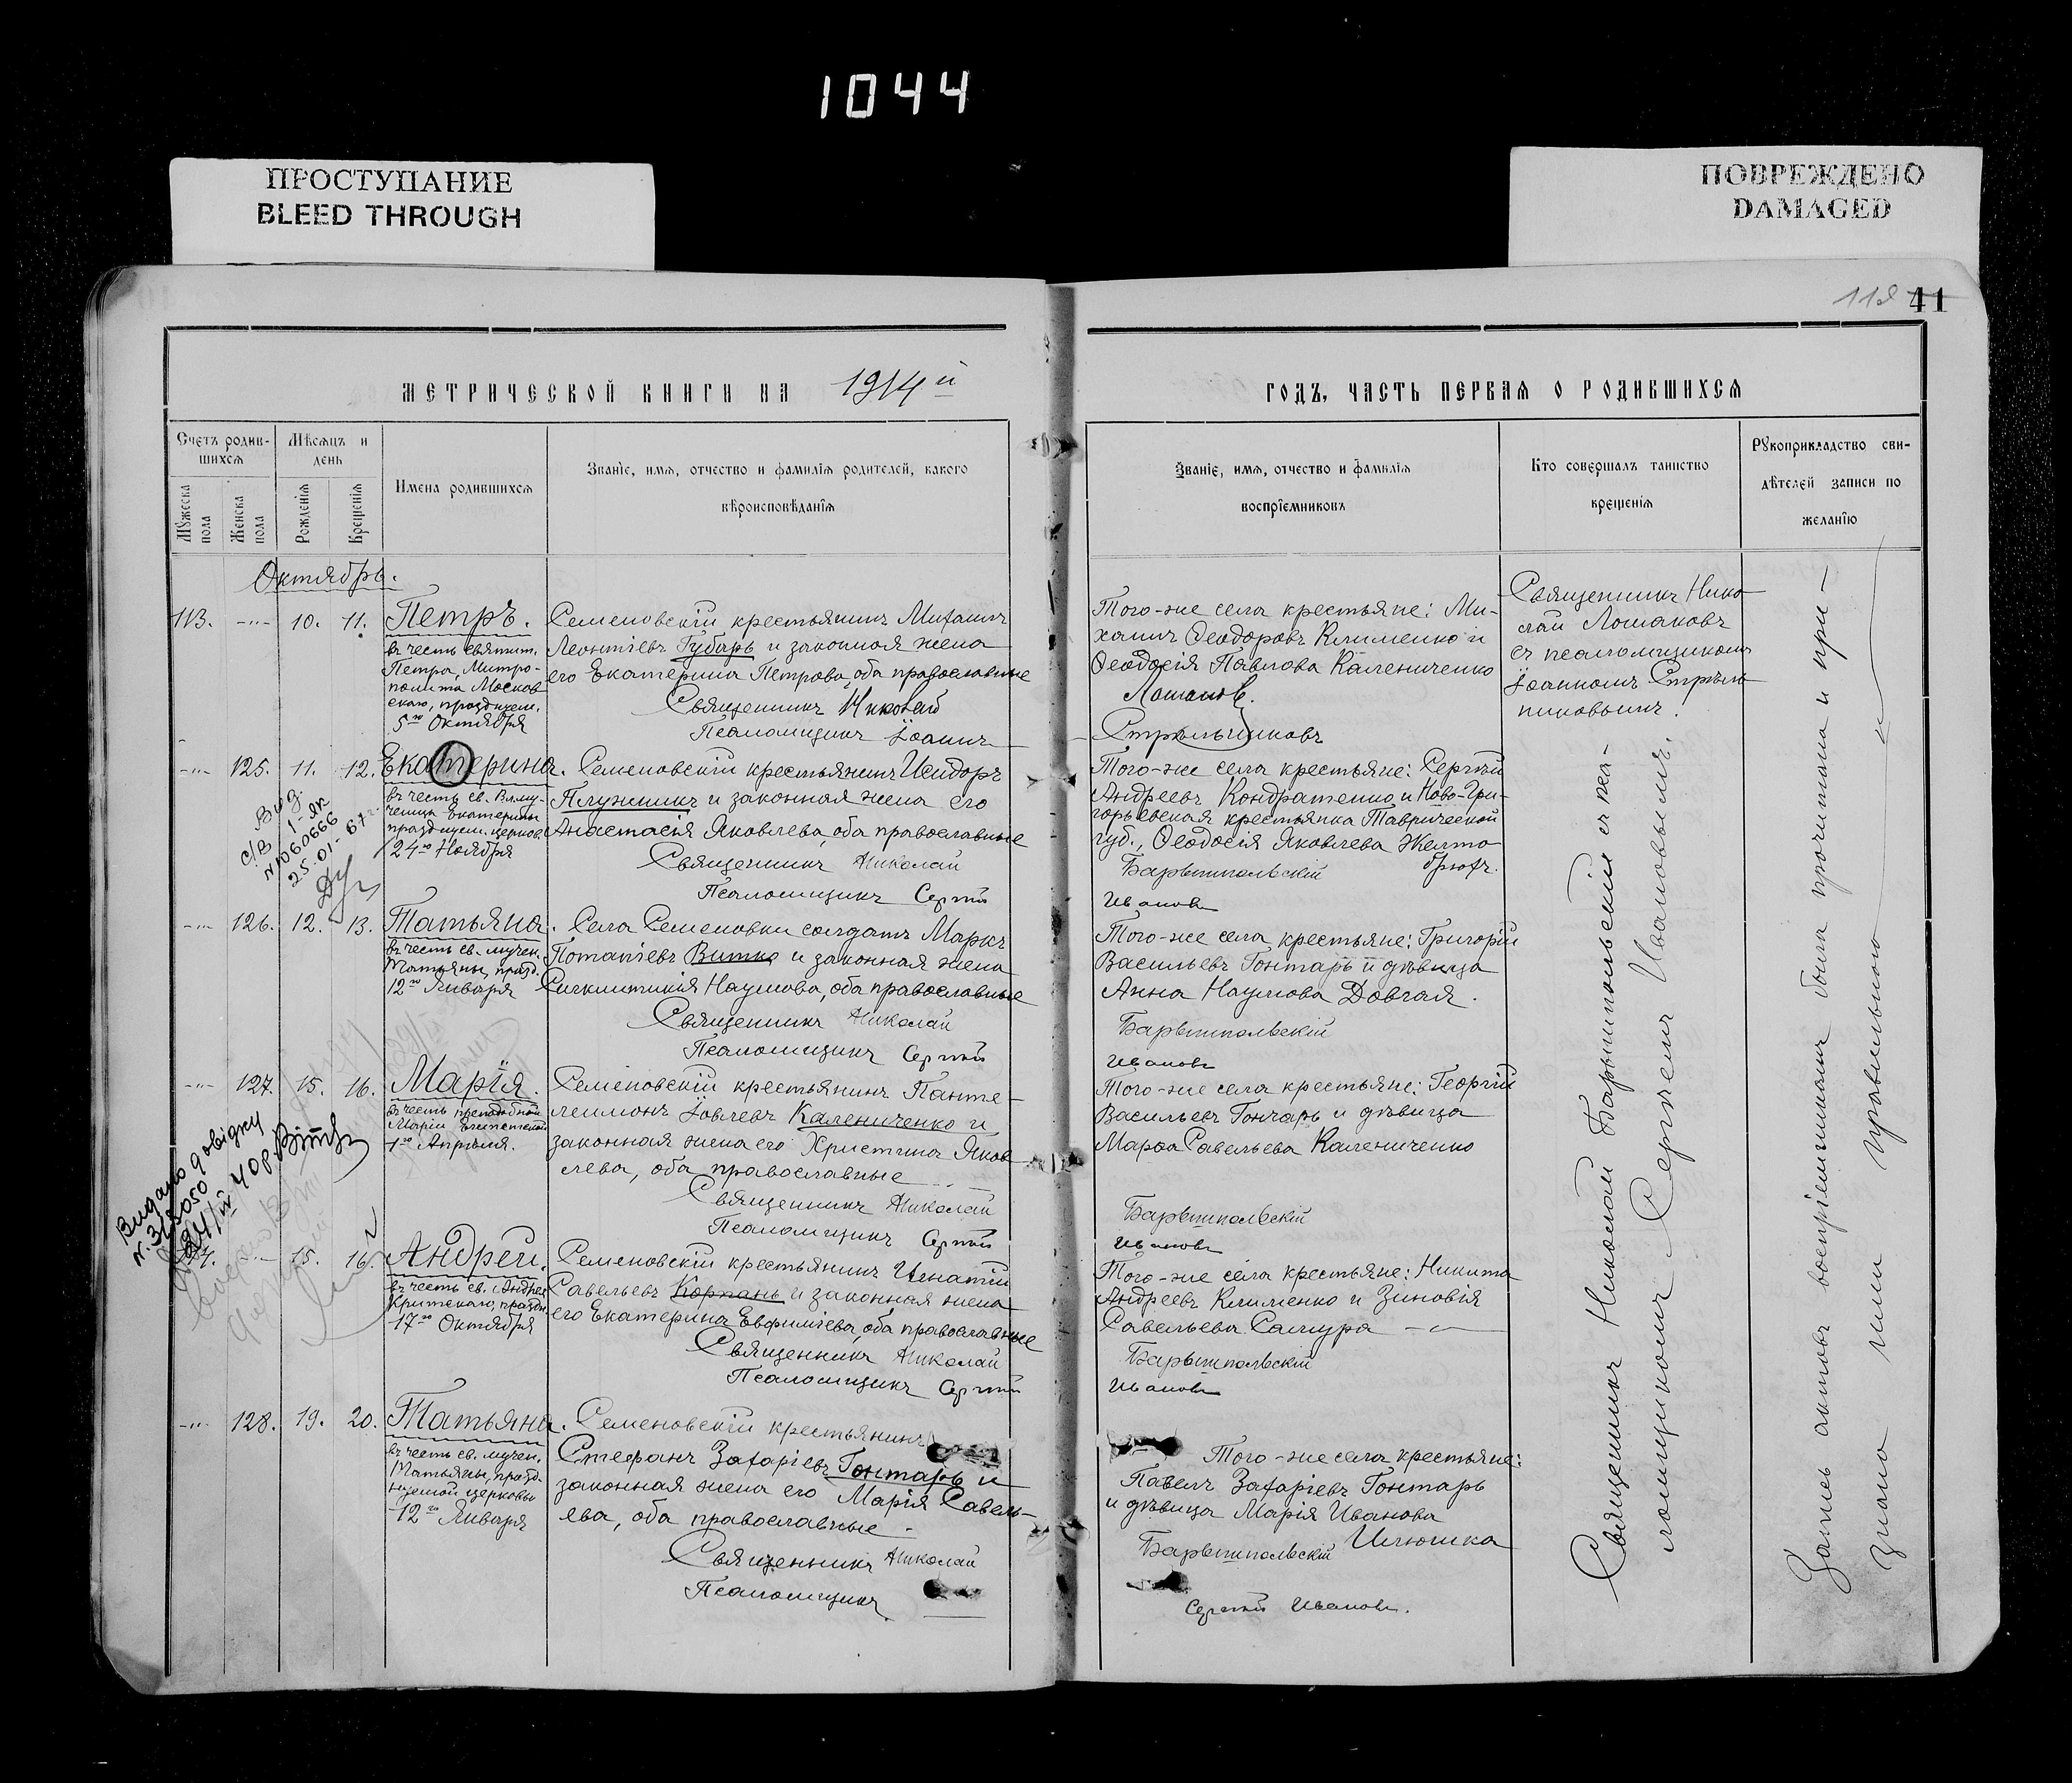 1044
ПРОСТУПАНИЕ
BLEED THROUGH
ПОВРЕЖДЕНО
DAMAGED
41
МЕТРИЧЕСКОЙ КНИГИ НА 1914й
ГОДЪ, ЧАСТЬ ПЕРВАЯ О РОДИВШИХСЯ
Счетъ родив-
шихся
Мужеска пола
Женска пола
Мѣсяцъ и
день
Рожденія
Крещенія
Имена родившихся
Званіе, имя, отчество и фамилія родителей, какого
вѣроисповѣданія
Званіе, имя, отчество и фамилія
воспріемниковъ
Кто совершалъ таинство
крещенія
Рукоприкладство сви-
дѣтелей записи по
желанію
Октябрь.
113. -"- 10. 11. Петръ.
въ честь святит.
Петра, Митро-
полита Москов-
скаго, празднуем.
5го Октября
Семеновскій крестьянинъ Михаилъ
Леонтіевъ Губарь и законная жена
его Екатерина Петрова, оба православные
Священникъ Николай
Псаломщикъ Іоаннъ
Того-же села крестьяне: Ми-
хаилъ Ѳеодоровъ Клименко и
Ѳеодосія Павлова Калениченко
Лошаковъ.
Стрѣльниковъ
Священникъ Нико
лай Лошаковъ
съ псаломщикомъ
Іоанномъ Стрѣль
никовымъ.
-"- 125. 11. 12. Екатерина.
въ честь св. Вллму-
ченицы Екатерины
празднуем. церков.
24го Ноября
Семеновскій крестьянинъ Исидоръ
Плужникъ и законная жена его
Анастасія Яковлева, оба православные
Священникъ Николай
Псаломщикъ Сергій
Того-же села крестьяне: Сергій
Андреевъ Кондратенко и Ново-Гри-
горьевская крестьянка Таврической
губ., Ѳеодосія Яковлева Желто-
брюхъ.
Барышпольскій
Ивановъ
Вид.
с/в 1-ЯК
N 1060666
25-01-67
-"- 126. 12. 13. Татьяна.
въ честь св. мучен.
Татьяны, празд.
12го Января
Села Семеновки солдатъ Маркъ
Потапіевъ Витко и законная жена
Сигклитикія Наумова, оба православные
Священникъ Николай
Псаломщикъ Сергій
Того-же села крестьяне: Григорій
Васильевъ Гонтарь и дѣвица
Анна Наумова Довгая.
Барышпольскій
Ивановъ
-"- 127. 15. 16. Марія.
въ честь преподобной
Маріи Египетской
1го Апрѣля.
Семеновскій крестьянинъ Панте-
леимонъ Іовлевъ Калениченко и
законная жена его Христина Яков-
лева, оба православные
Священникъ Николай
Псаломщикъ Сергій
Того-же села крестьяне: Георгій
Васильевъ Гончарь и дѣвица
Марѳа Савельева Калениченко
Барышпольскій
Ивановъ
Видано довідку
-"- 15. 16. Андрей.
въ честь св. Андрея
Критскаго, праздн.
17го Октября
Семеновскій крестьянинъ Игнатій
Савельевъ Корпань и законная жена
его Екатерина Евфиміева, оба православные
Священникъ Николай
Псаломщикъ Сергій
Того-же села крестьяне: Никита
Андреевъ Клименко и Зиновія
Савельева Самура
Барышпольскій
Ивановъ
-"- 128. 19. 20. Татьяна.
въ честь св. мучен.
Татьяны, празд-
нуемой церковью
12го Января
Семеновскій крестьянинъ
Стефанъ Захаріевъ Гонтарь и
законная жена его Марія Савель-
ева, оба православные
Священникъ Николай
Псаломщикъ
Того-же села крестьяне:
Павелъ Захаріевъ Гонтарь
и дѣвица Марія Иванова
Илюшка
Барышпольскій
Сергій Ивановъ.
Священникъ Николай Барышпольскій съ пса-
ломщикомъ Сергіемъ Ивановымъ.
Запись актовъ воспріемникамъ была прочитана и при-
знана ими правильною